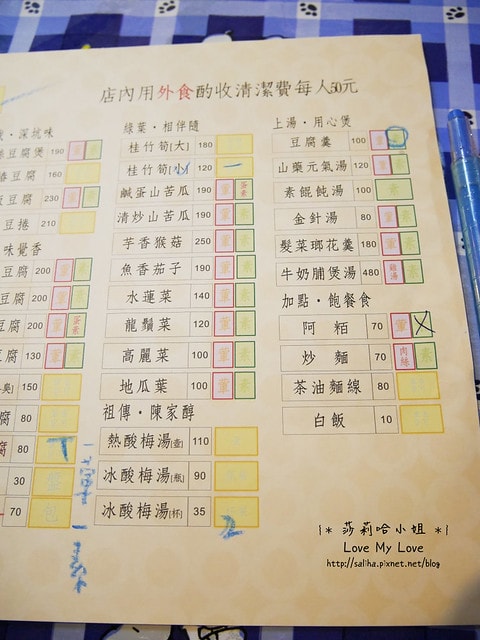 店內用外食酌收清潔費每人50元
深坑味
豆腐煲 190 葷 素
豆腐 160
豆腐 230 葷 素
豆捲 210
味覺香
豆腐 200 葷 素
豆腐 200 葷 素
豆腐 200 葷 蛋素
腐 130 葷 素
150
腐 80
腐 80
30
70 包
綠葉·相伴隨
桂竹筍[大] 180
桂竹筍[小] 120 一
鹹蛋山苦瓜 190 葷 蛋素
清炒山苦瓜 190 葷 素
芋香猴菇 250 葷 素
魚香茄子 190 葷 素
水蓮菜 140 葷 素
龍鬚菜 120 葷 素
高麗菜 100 葷 素
地瓜葉 100 葷 素
祖傳·陳家醇
熱酸梅湯[壺] 110
冰酸梅湯[瓶] 90
冰酸梅湯[杯] 35
2
上湯·用心煲
豆腐羹 100 葷 素
山藥元氣湯 120 葷 素
素餛飩湯 100 素
金針湯 80 葷 素
髮菜瑯花羹 180 葷 素
牛奶脯煲湯 480 雞湯 素
加點·飽餐食
阿粨 70 葷
炒麵 70 肉絲 素
茶油麵線 80
白飯 10
|* 莎莉哈小姐 *|
Love My Love
http://saliha.pixnet.net/blog